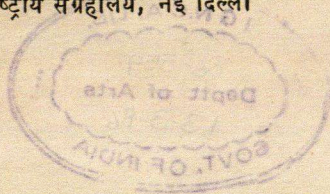 ष्ट्रीय संग्रहालय, नई दिल्ली
Deptt of Arts
GOVT. OF INDIA